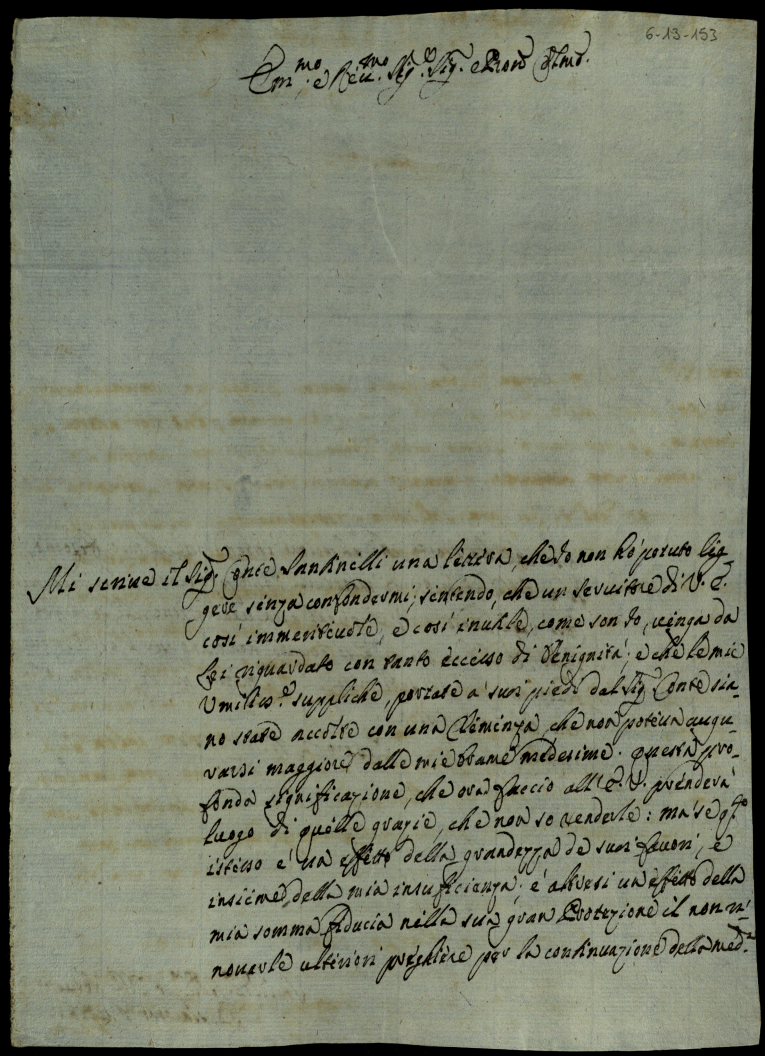 6-13-153
Em.mo e Rev.mo Sig.r Sig.r e Pron Colmo.
Mi scriue il Sig.r Conte Santinelli una lettera, che Io non hò potuto leg-
gere senza confondermi, sentendo, che un seruitore di V. E.
così immeriteuole, e così inutile, come son Io, uenga da
Lei riguardato con tanto eccesso di Benignità; e che le mie
Umiliss.e suppliche, portate a' suoi piedi dal Sig.r Conte sia-
no state accolte con una Clemenza, che non poteua augu-
rarsi maggiore dalle mie brame medesime. Questa pro-
fonda significazione, che ora faccio all'E. V. prenderà
luogo di quelle grazie, che non so renderle: mà se q.sto
istesso è un effetto della grandezza de suoi fauori, e
insieme della mia insuficienza; è altresì un effetto della
mia somma fiducia nella sua gran Protezione il non ri-
nouarle ulteriori preghiere per la continuazione della med.a